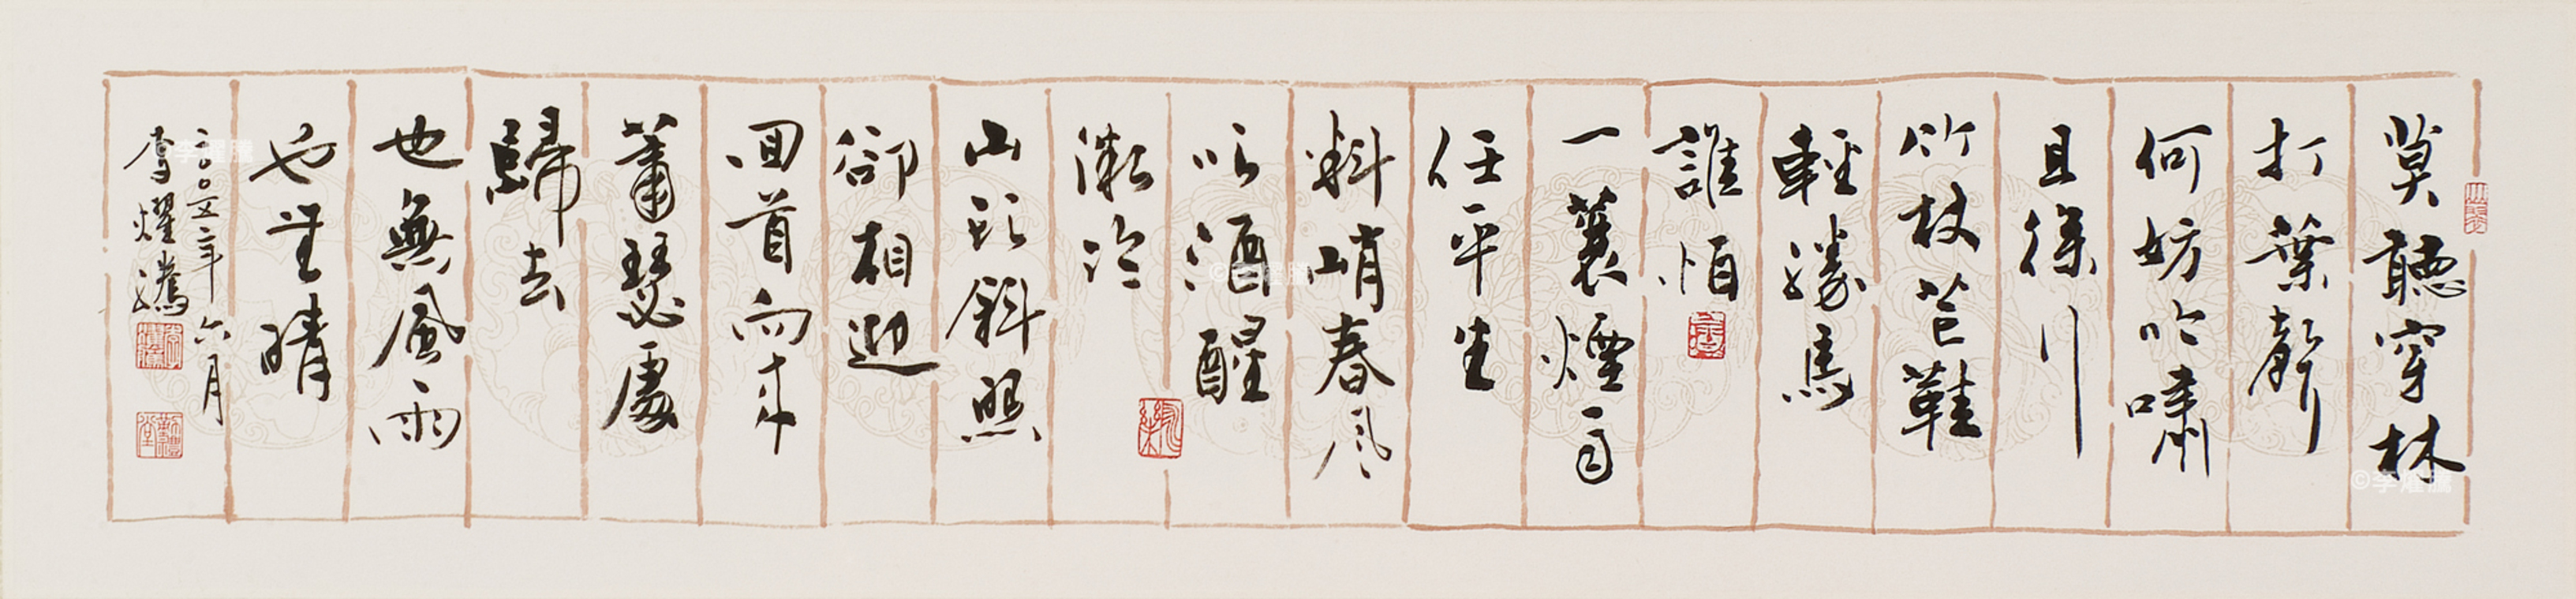 莫聽穿林
打葉聲
何妨吟嘯
且徐行
竹杖芒鞋
輕勝馬
誰怕
一蓑煙雨
任平生
料峭春風
吹酒醒
微冷
山頭斜照
卻相迎
回首向來
蕭瑟處
歸去
也無風雨
也無晴
二〇〇五年六月
李燿騰
©李燿騰
©李燿騰
©李燿騰